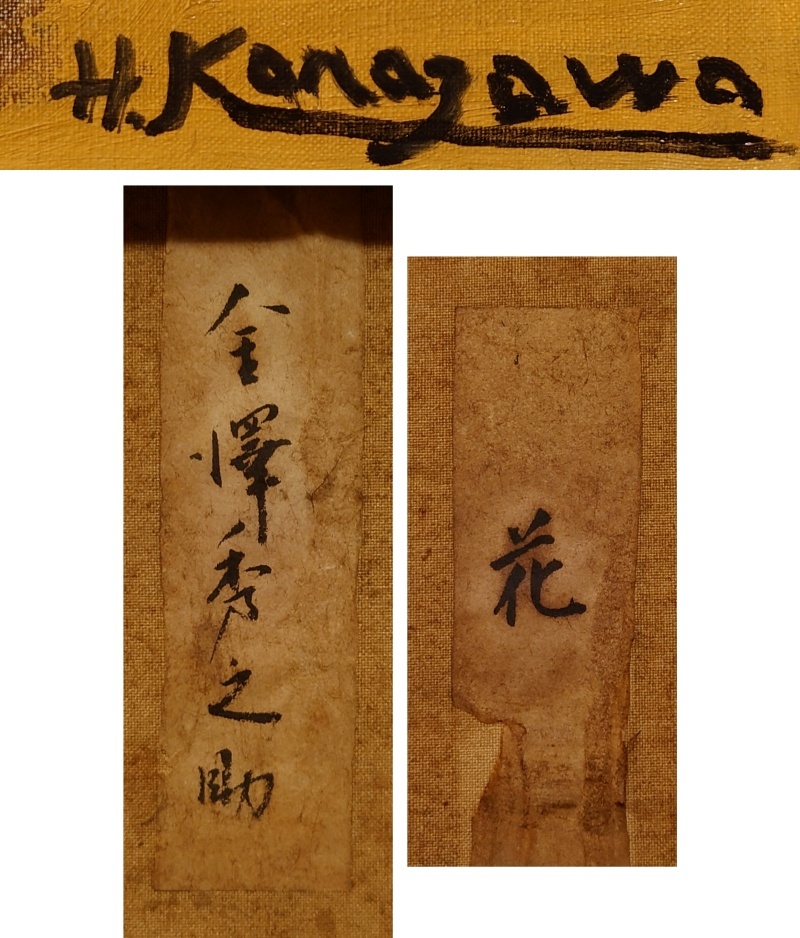 H. Kanazawa
金澤秀之助
花